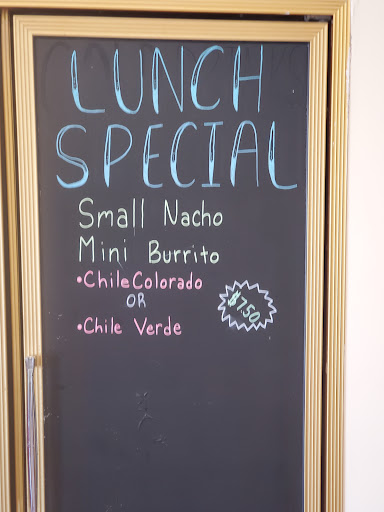 LUNCH
SPECIAL
Small Nacho
Mini Burrito
•Chile Colorado
OR
•Chile Verde
$7.50